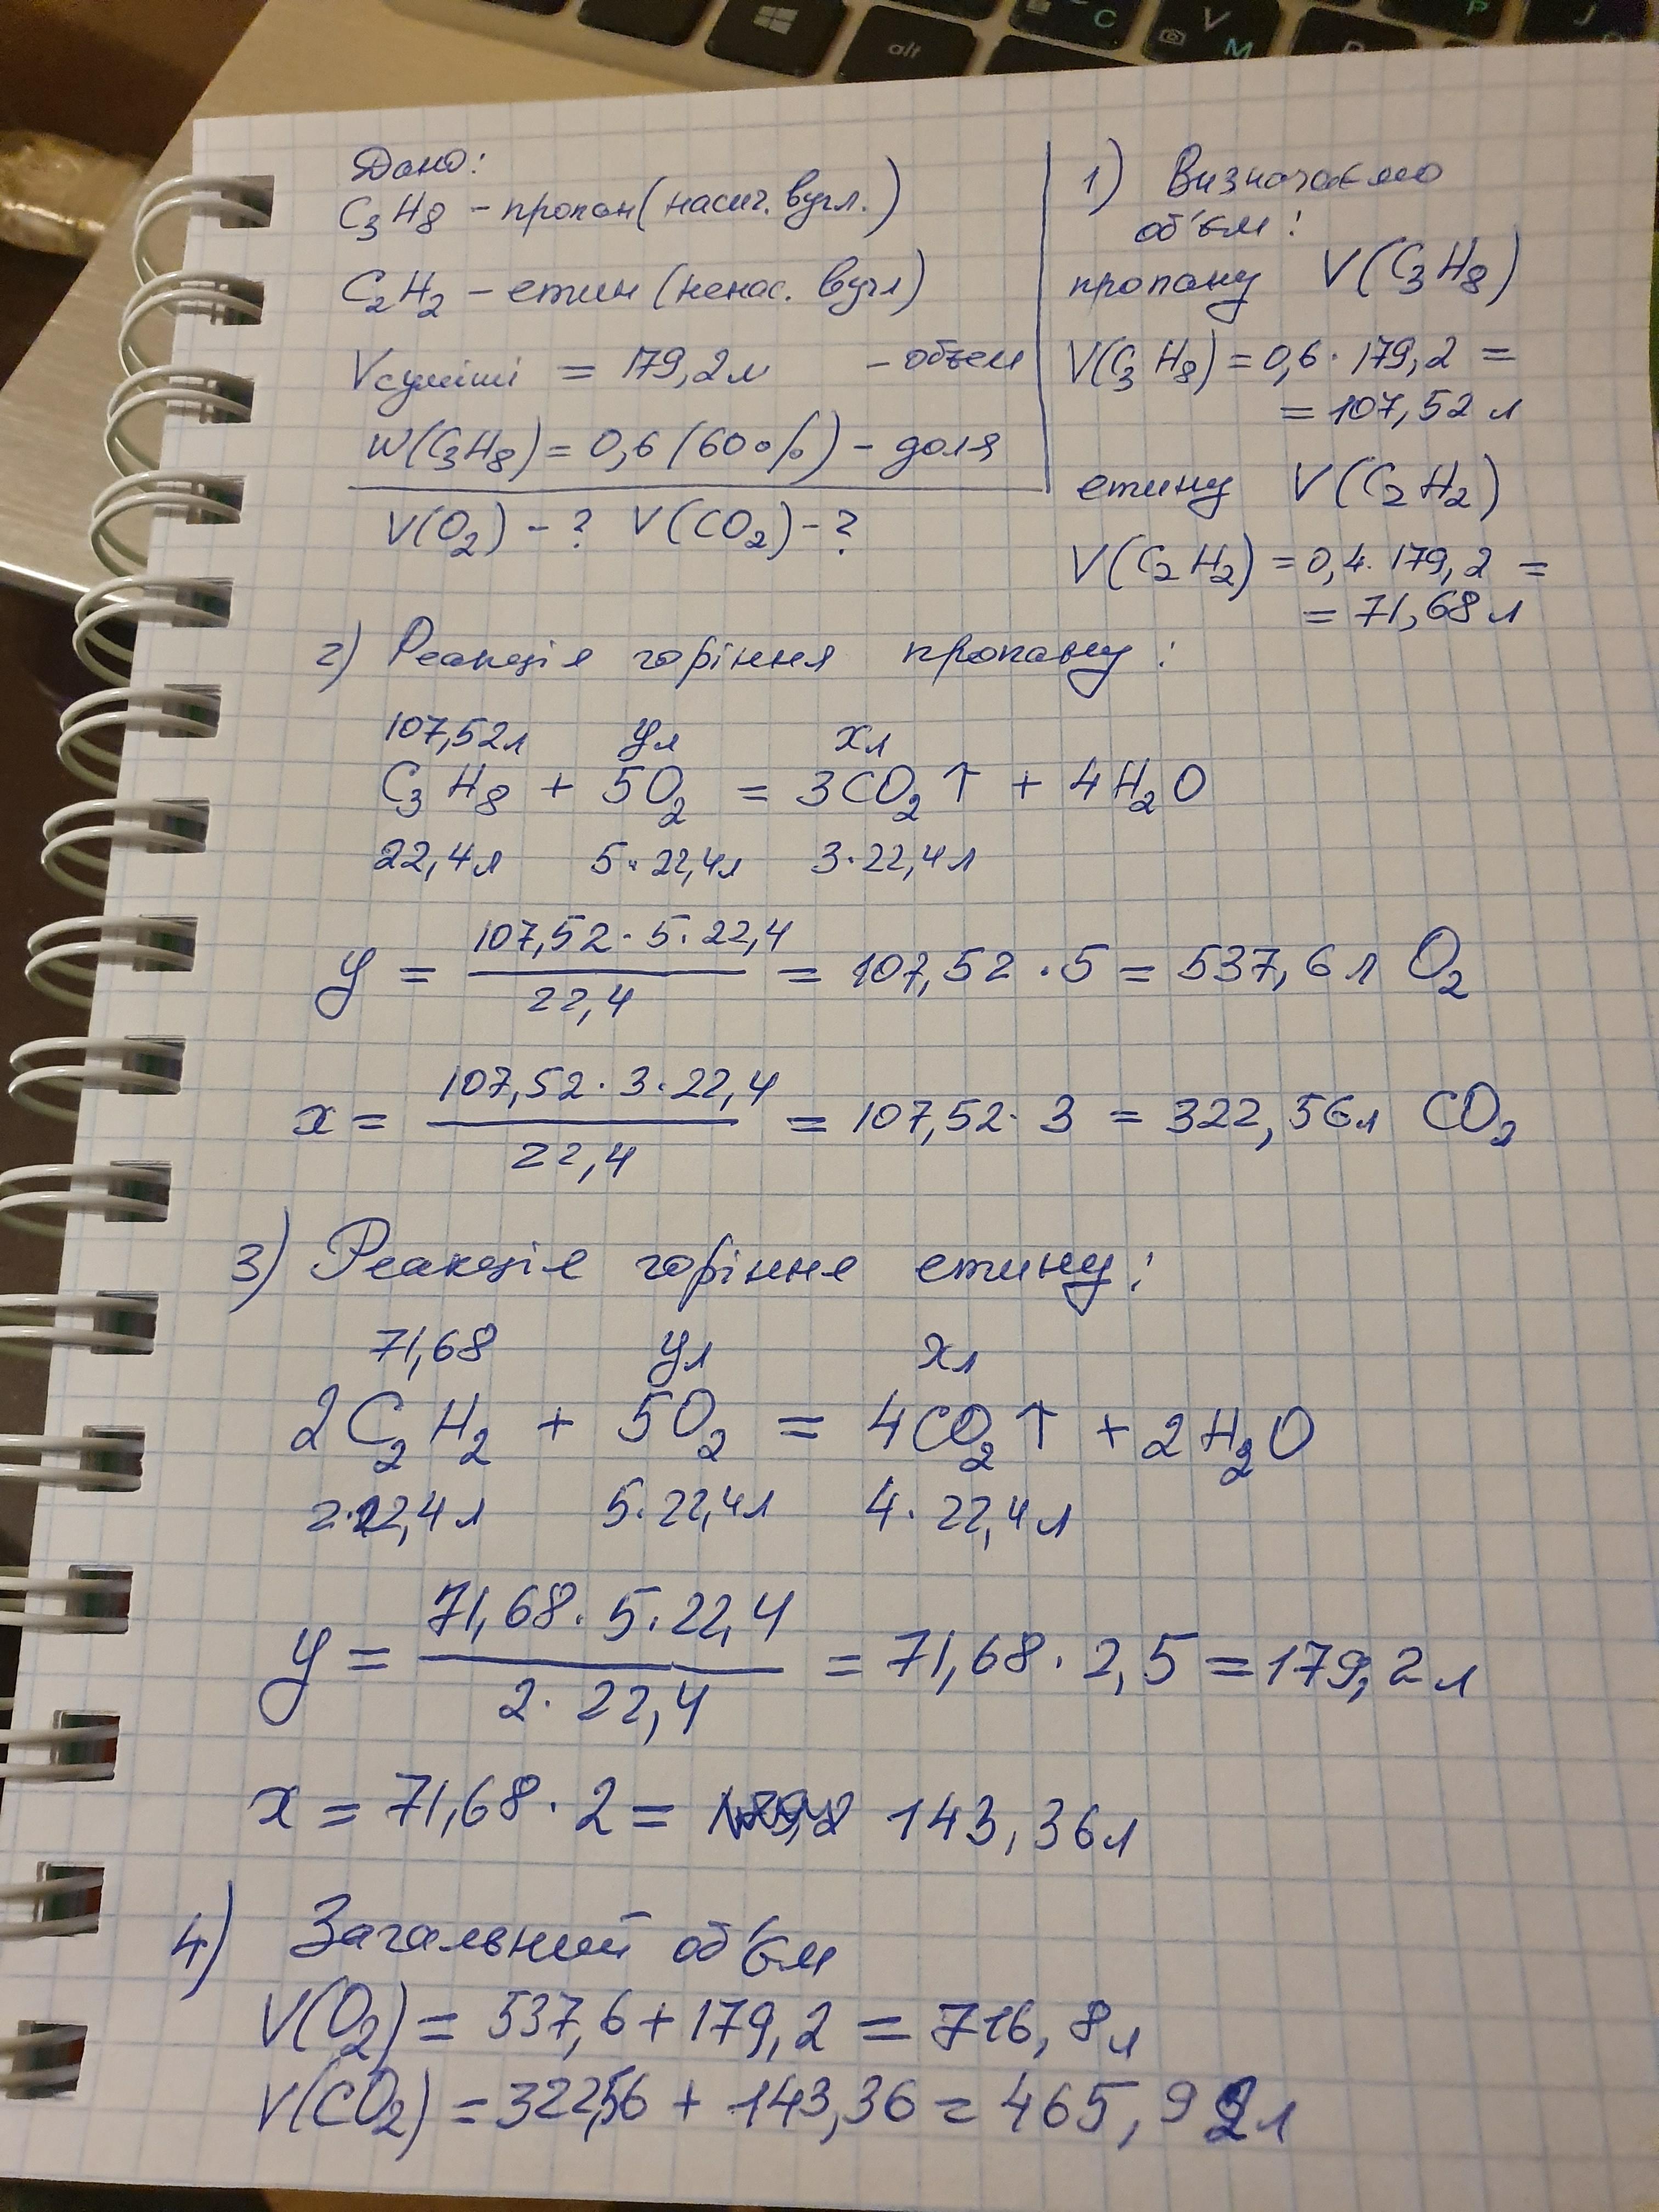 Дано:
C₃H₈ – пропан (насич. вугл.)
C₂H₂ – етин (ненас. вугл)
Vсуміші = 179,2 л – объем
W(C₃H₈) = 0,6 (60%) – доля
V(O₂) – ? V(CO₂) – ?
1) Визначаємо
об'єм:
пропану V(C₃H₈)
V(C₃H₈) = 0,6 · 179,2 =
= 107,52 л
етину V(C₂H₂)
V(C₂H₂) = 0,4 · 179,2 =
= 71,68 л
2) Реакція горіння пропану:
107,52 л yл xл
C₃H₈ + 5O₂ = 3CO₂↑ + 4H₂O
22,4 л 5 · 22,4 л 3 · 22,4 л
y = (107,52 · 5 · 22,4) / 22,4 = 107,52 · 5 = 537,6 л O₂
x = (107,52 · 3 · 22,4) / 22,4 = 107,52 · 3 = 322,56 л CO₂
3) Реакція горіння етину:
71,68 yл xл
2C₂H₂ + 5O₂ = 4CO₂↑ + 2H₂O
2·22,4 л 5·22,4 л 4 · 22,4 л
y = (71,68 · 5 · 22,4) / (2 · 22,4) = 71,68 · 2,5 = 179,2 л
x = 71,68 · 2 = 143,36 л
4) Загальний об'єм
V(O₂) = 537,6 + 179,2 = 716,8 л
V(CO₂) = 322,56 + 143,36 = 465,92 л
alt
C
V
M